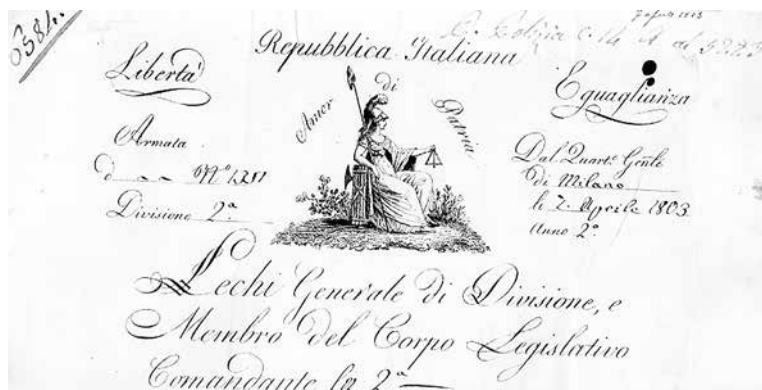 6584.
7 aprile 1803
Repubblica Italiana
Libertà
Eguaglianza
Amor di Patria
Armata
Nº 1281
Divisione 2ª
Dal Quart.e Gen.le
di Milano
li 7. Aprile 1803
Anno 2º
Lechi Generale di Divisione, e
Membro del Corpo Legislativo
Comandante la 2ª